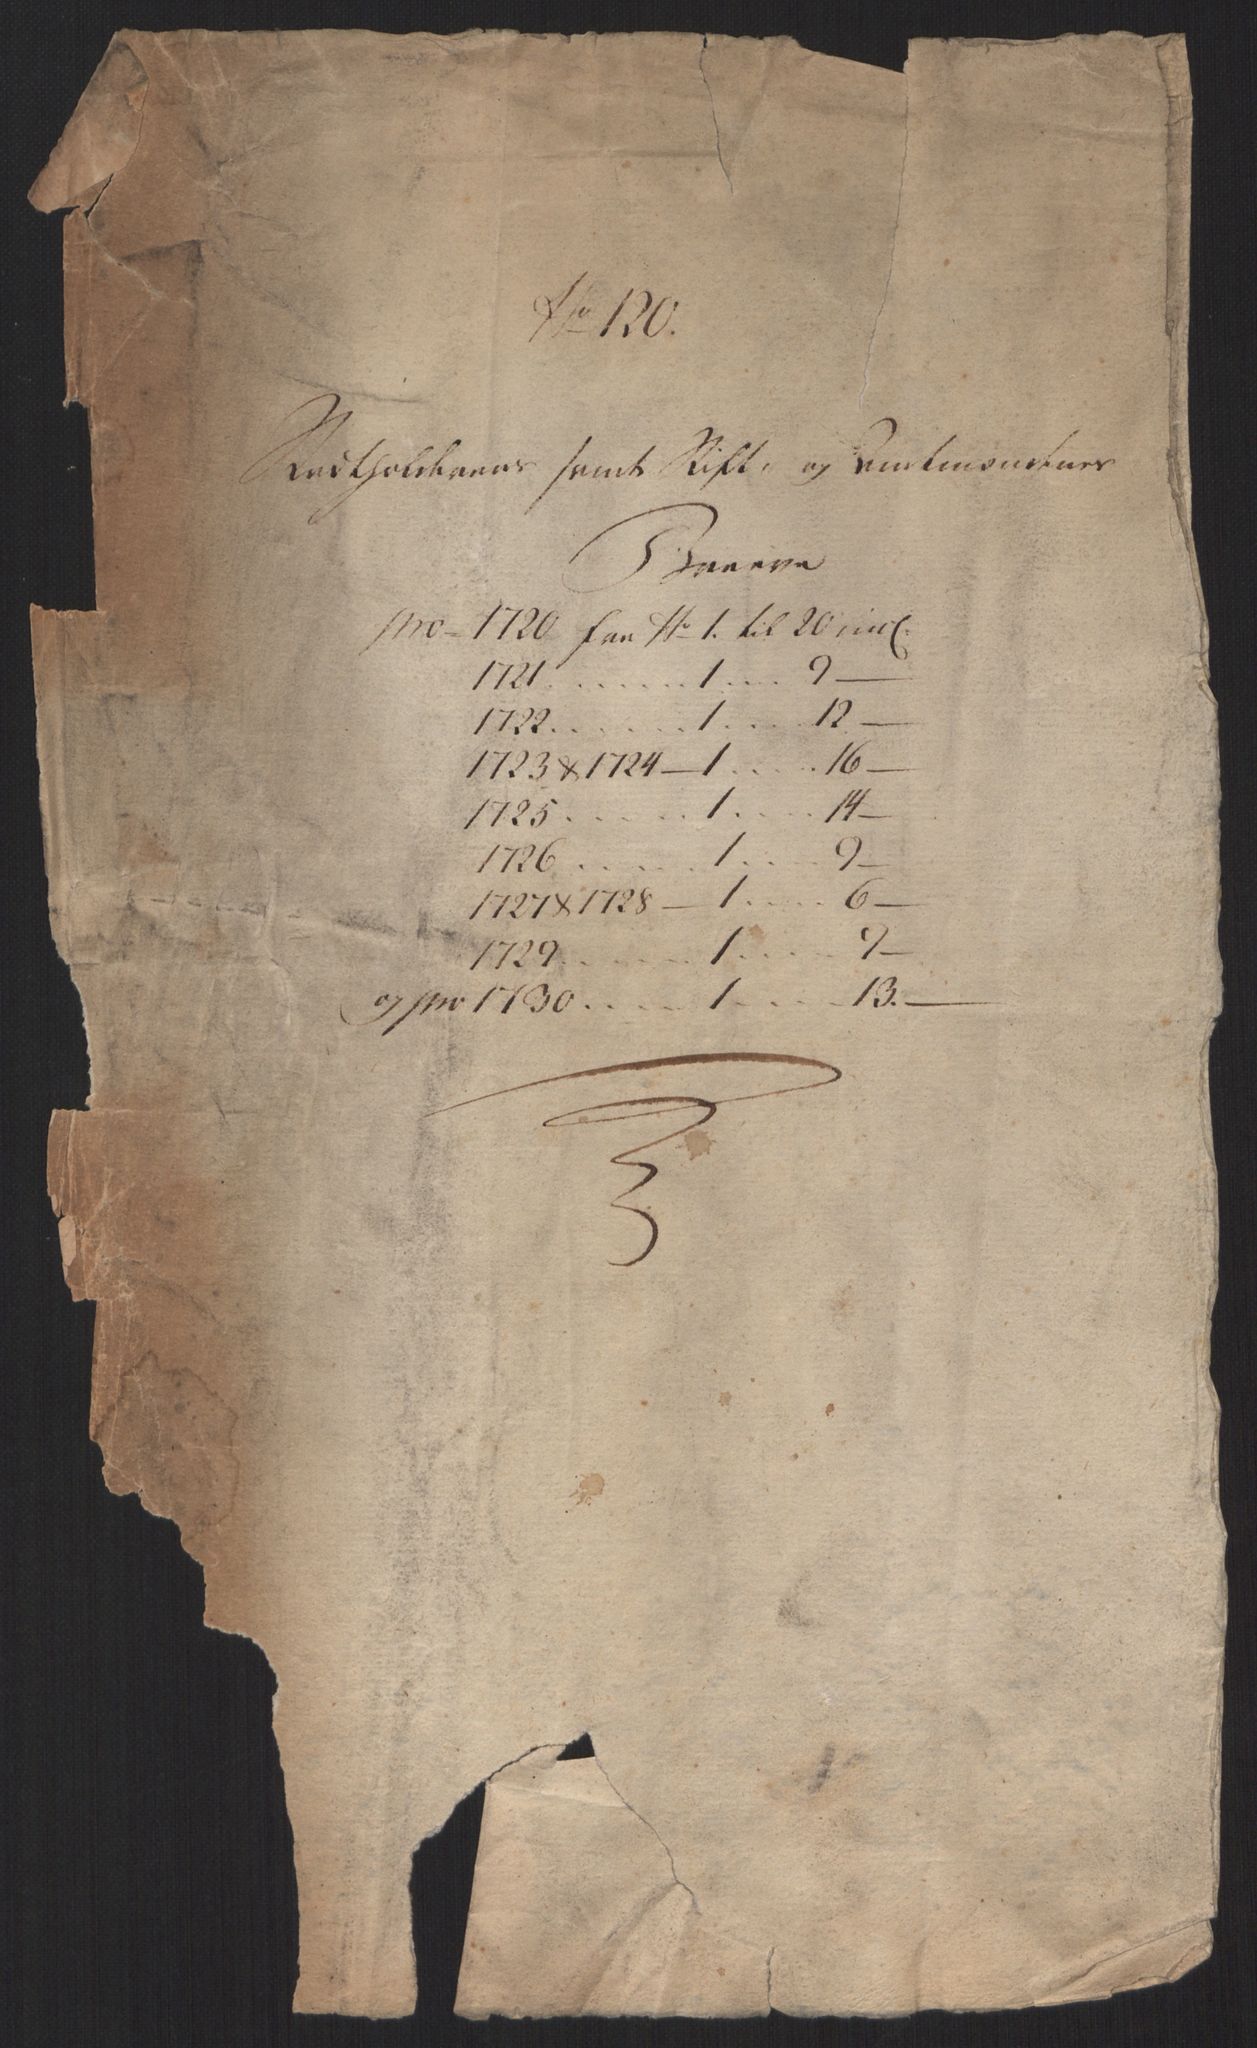 No 120.
Stadtholderens samt Stift, og Amtmændenes
Breeve
pro - 1720 fra No 1. til 20 incl.
1721 . . . . . . . 1 . . . . 9 —
1722 . . . . . . . 1 . . . . 12 —
1723 & 1724 — 1 . . . . . 16 —
1725 . . . . . . 1 . . . . 14 —
1726 . . . . . . 1 . . . . 9 —
1727 & 1728 — 1 . . . . . 6 —
1729 . . . . . . 1 . . . . . 9 —
og pro 1730 . . . . . 1 . . . . . 13. —